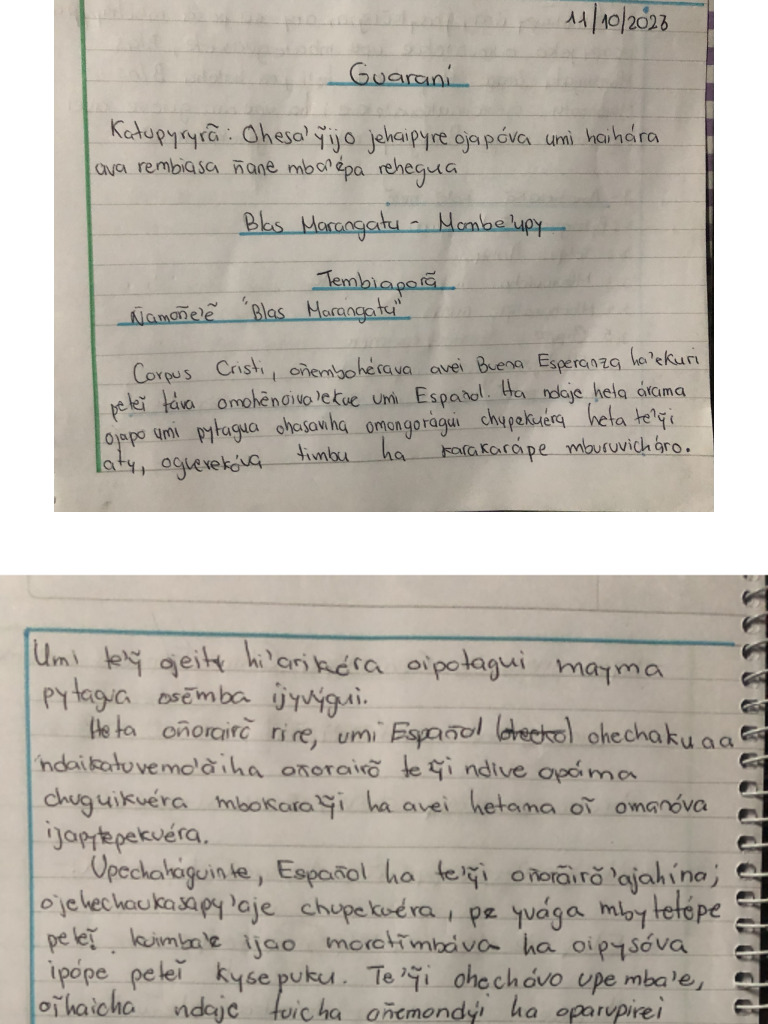 11/10/2023
Guaraní
Katupyryrã: Ohesa'ỹijo jehaipyre ojapóva umi haihára
ava rembiasa ñane mba'épa rehegua
Blas Marangatu - Mombe'upy
Tembiaporã
Ñamoñe'ẽ "Blas Marangatu"
Corpus Cristi, oñembohérava avei Buena Esperanza ha'ekuri
peteĩ táva omohẽnoiva'ekue umi Español. Ha ndaje heta árama
ojapo umi pytagua ohasaviha omangorágui chupekuéra heta te'ỹi
aty, oguerekóva timbu ha karakarápe mburuvicháro.
Umi te'ỹ ojeity hi'arikéra oipotagui mayma
pytagua osẽmba ijyvýgui.
Heta oñorairõ rire, umi Español ohechakuaa
ndaikatuvemo'ãiha oñorairõ te'ỹi ndive opáma
chuguikuéra mbokara'ỹi ha avei hetama oĩ omanóva
ijapytepekuéra.
Upechaháguinte, Español ha te'ỹi oñorãirõ'ajahína;
ojehechaukasapy'aje chupekuéra, pe yvága mbytetépe
peteĩ kuimba'e ijao morotĩmbáva ha oipysóva
ipópe peteĩ kysepuku. Te'ỹi ohechávo upe mba'e,
oĩhaicha ndaje tuicha oñemondýi ha oparupirei